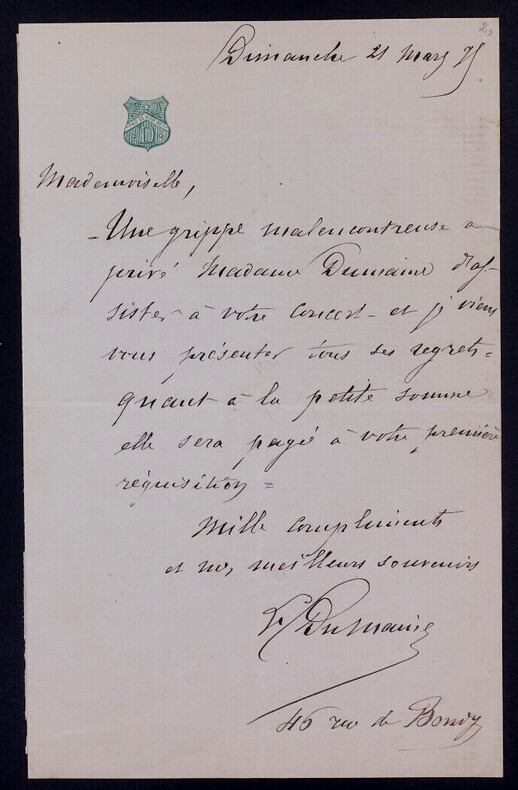 2,
Dimanche 21 Mars 75
D
Mademoiselle,
- Une grippe malencontreuse a
privé Madame Dumaine d'as-
sister à votre concert - et je viens
vous présenter tous ses regrets =
quant à la petite somme
elle sera payée à votre première
réquisition =
Mille compliments
et nos meilleurs souvenirs
Dumaine
46 rue de Bondy